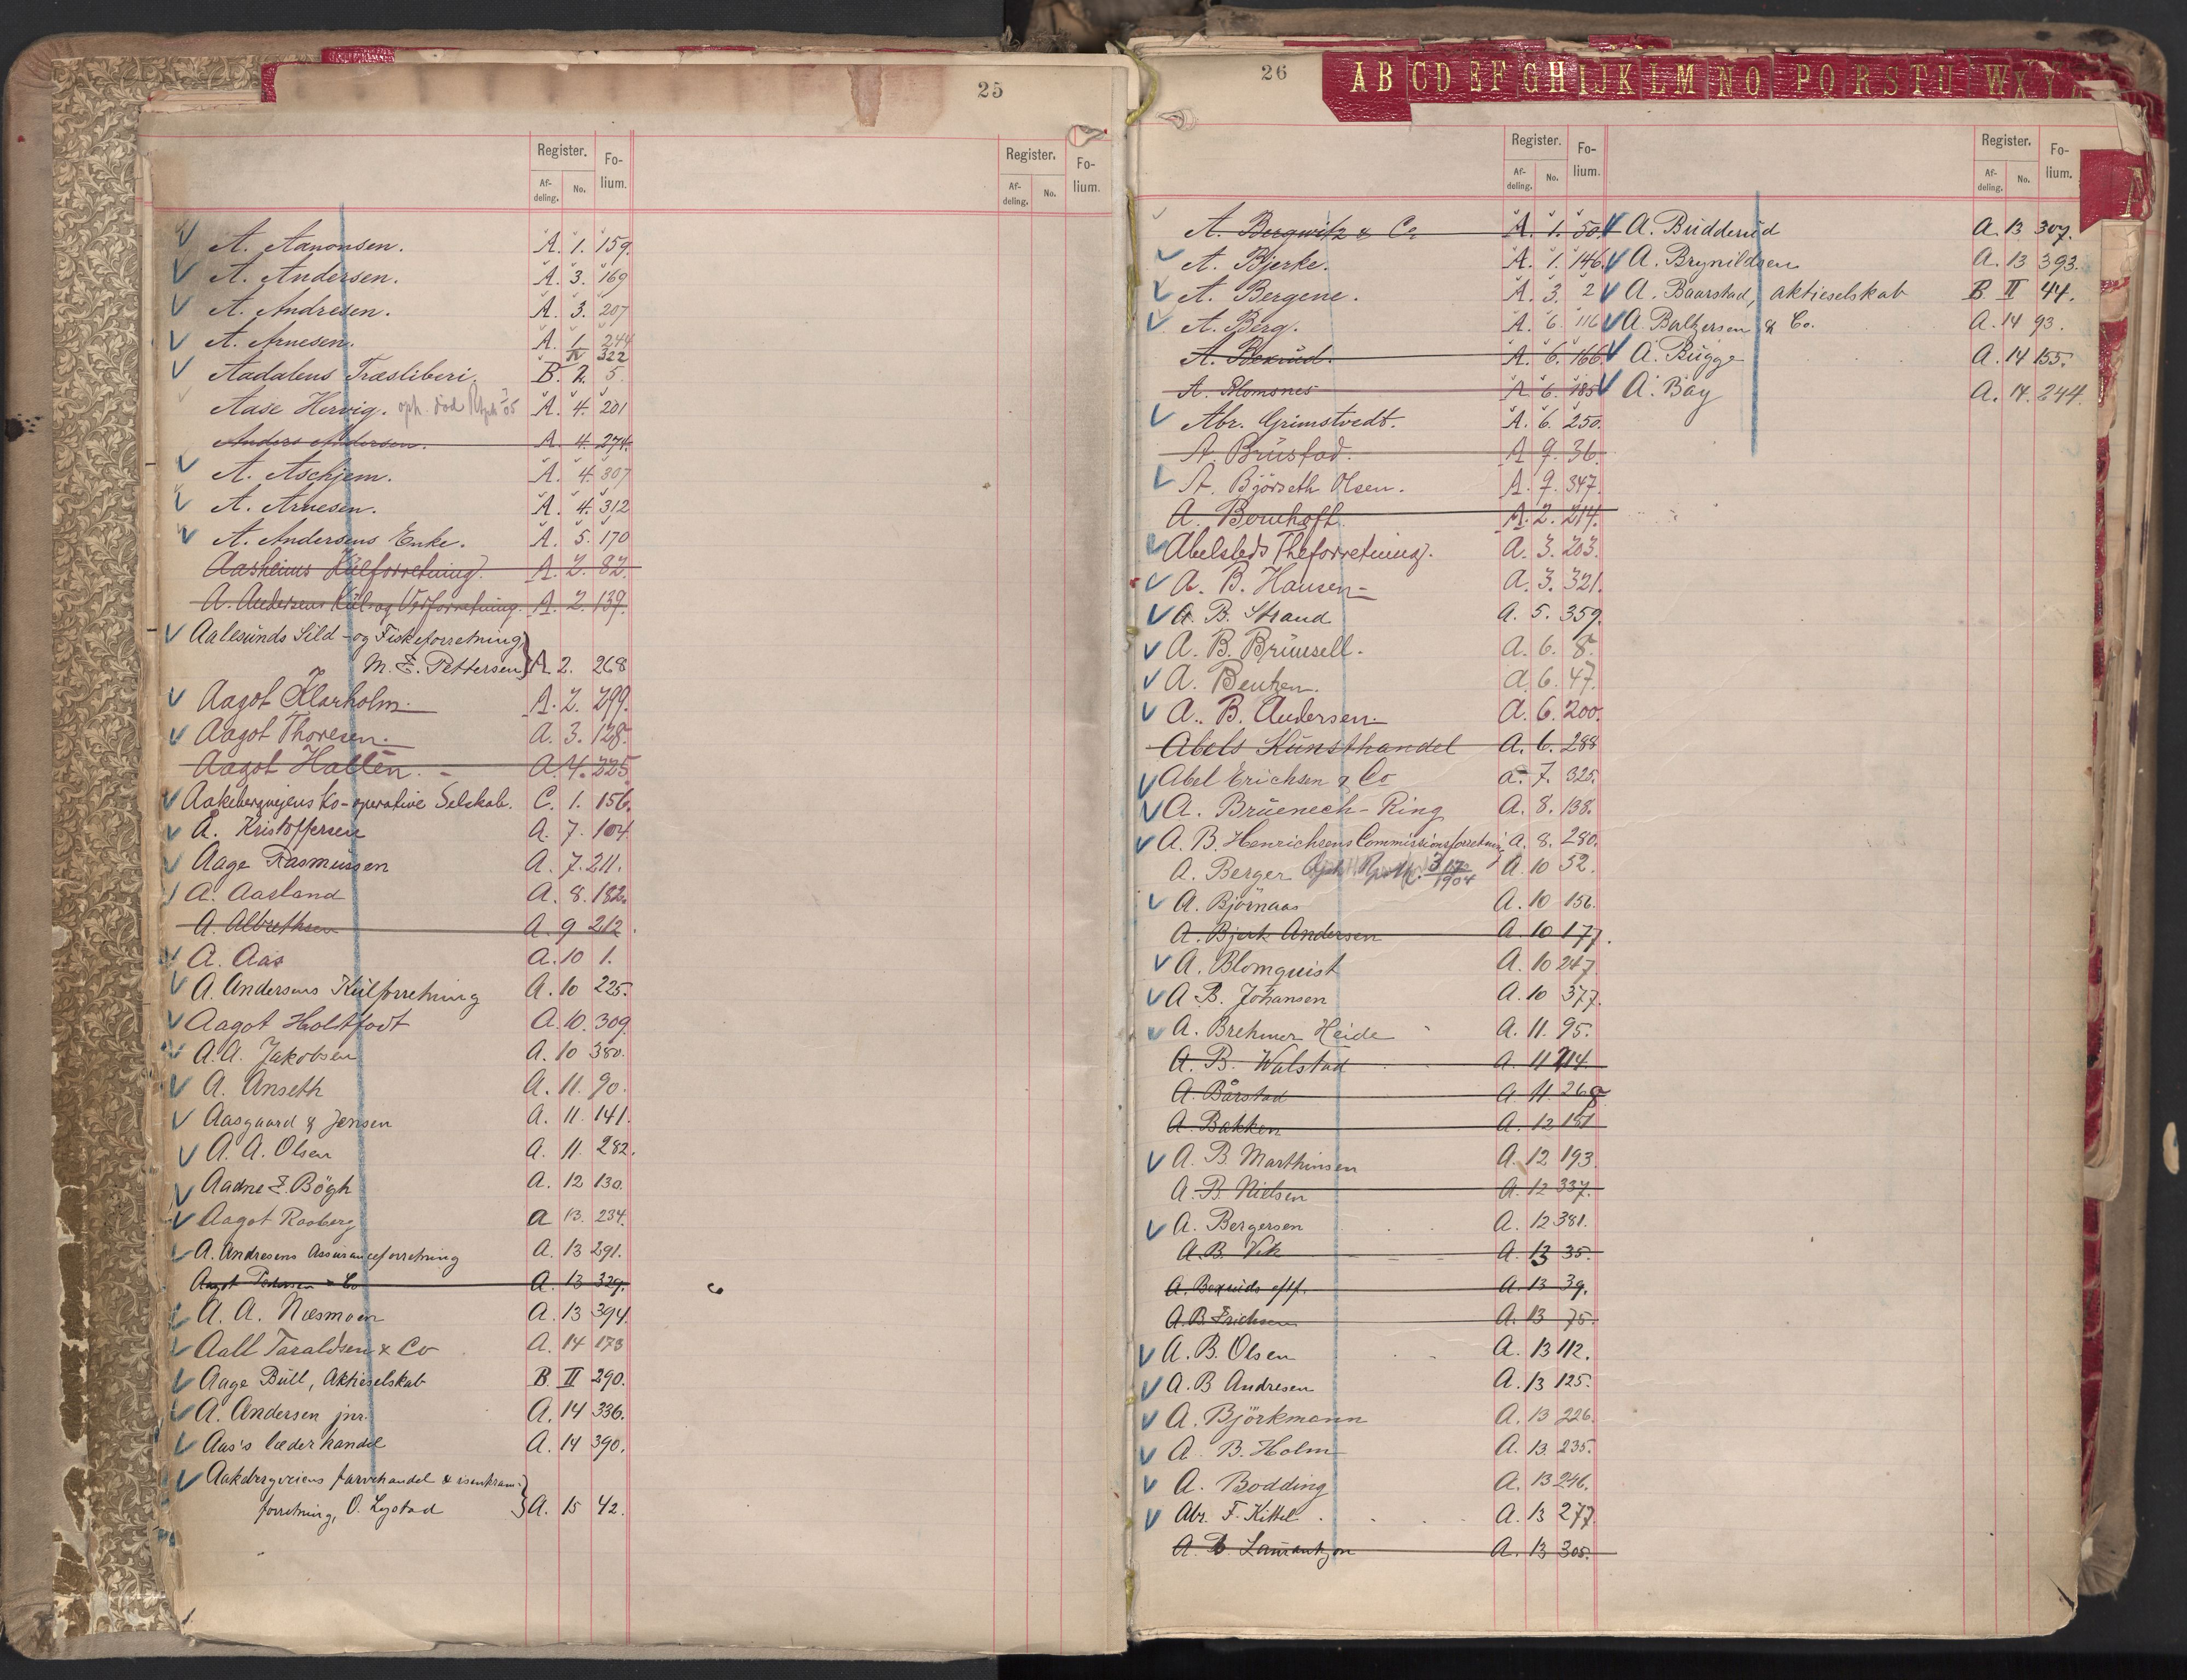 25
Register. Fo-
lium.
Af-
deling. No.
Register. Fo-
lium.
Af-
deling. No.
A. Aanonsen. A. 1. 159.
A. Andersen. A. 3. 169
A. Andresen. A. 3. 207
A. Arnesen. A. 1. 244
IV 322
Aadalens Træsliberi. B. 2. 5.
Aase Hervig. oph. A. 4. 201
Anders Andersen. A. 4. 274.
A. Aschjem. A. 4. 307
A. Arnesen. A. 4. 312
A. Andersens Enke. A. 5. 170
Aasheims Kulforretning. A. 2. 82.
A. Andersens Kul og Vedforretning. A. 2. 139.
Aalesunds Sild- og Fiskeforretning,
M. E. Pettersen A. 2. 268
Aagot Klarholm. A. 2. 299.
Aagot Thoresen. A. 3. 128.
Aagot Hallén. A. 4. 325.
Aakebergvejens Ko-operative Selskab. C. 1. 156.
A. Kristoffersen A. 7. 104
Aage Rasmussen A. 7. 211.
A. Aasland A. 8. 182.
A. Albrethsen A. 9 212.
A. Aas A. 10 1.
A. Andersens Kulforretning A. 10 225.
Aagot Holtfodt A. 10. 309.
A. A. Jakobsen A. 10 380.
A. Anseth A. 11. 90.
Aasgaard & Jensen A. 11. 141.
A. A. Olsen A. 11. 282.
Aadne E. Bögh A. 12 130.
Aagot Rosberg A 13. 234.
A. Andresens Assuranceforretning A. 13 291.
Aagot Pedersen & Co A. 13 329.
A. A. Næsmoen A. 13 394.
Aall Taraldsen & Co A. 14 173
Aage Bull, Aktieselskab B. II 290.
A. Andersen jnr. A. 14 336.
Aas's læderhandel A. 14 390.
Aakebergveiens farvehandel & isenkram-
forretning, O. Lystad A. 15 42.
26
A B C D E F G H I J K L M N O P Q R S T U W X Y
Register. Fo-
lium.
Af-
deling. No.
Register. Fo-
lium.
Af-
deling. No.
A
A. Bergwitz & Co A. 1. 50
A. Bjerke. A. 1. 146.
A. Bergene. A. 3. 2
A. Berg. A. 6. 116
A. Boxrud. A. 6. 166
A. Blomsnes A. 6. 185
Abr. Grimstvedt. A. 6. 250.
A. Brustad. A. 9. 36.
A. Björseth Olsen. A. 9. 347.
A. Bomhoff. A. 2. 214.
Abelsteds Theforretning. A. 3. 203.
A. B. Hansen A. 3. 321.
A. B. Strand A. 5. 359.
A. B. Brunsell. A. 6. 8.
A. Bentzen. A. 6. 47.
A. B. Andersen. A. 6. 200.
Abels Kunsthandel A. 6. 288
Abel Erichsen & Co A. 7. 325.
A. Brüenech-Ring A. 8. 138.
A. B. Henrichsens Commissionsforretning A. 8. 280.
A. Berger 1904 A. 10 52.
A. Björnaas A. 10 156.
A. Bjerk Andersen A. 10 177.
A. Blomquist A. 10 247.
A. B. Johansen A. 10 377.
A. Brehmer Heide A. 11. 95.
A. B. Walstad A. 11 214.
A. Bårstad A 11 268
A. Bakken A. 12 151
A. B. Marthinsen A. 12 193.
A. B. Nielsen A. 12 337.
A. Bergersen A. 12 381.
A. B. Vik A. 13 35.
A. Boxruds eftf. A. 13 39.
A. B. Erichsen A. 13 75.
A. B. Olsen A. 13 112.
A. B Andresen A. 13 125.
A. Björkmann A. 13 226.
A. B. Holm A. 13. 235.
A. Bodding A. 13 246.
Abr. F. Kittel A. 13 277.
A. B Laurantzon A. 13 305.
A. Budderud A. 13. 307.
A. Brynildsen A. 13 393.
A. Baarstad, aktieselskab B. II 44.
A. Baltzersen & Co. A. 14 93.
A. Bugge A. 14 155.
A. Bay A. 14. 244.